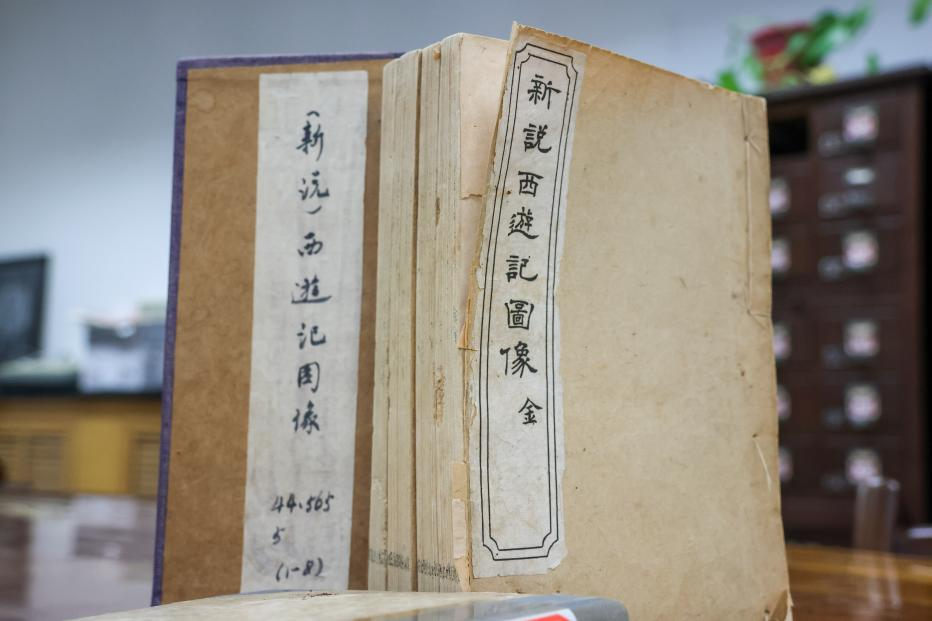 （新说）西遊记图像
44.565
5
(1-8)
新説西遊記圖像 金